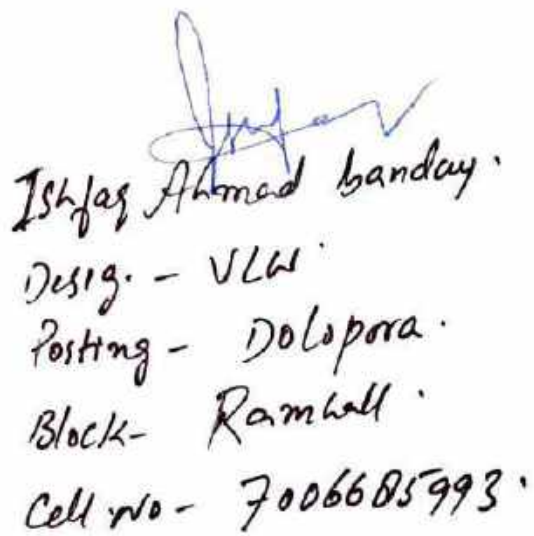 Ishfaq Ahmad banday.
Desig. - VLW.
Posting - Dolopora.
Block- Ramhall.
Cell no - 7006685993.